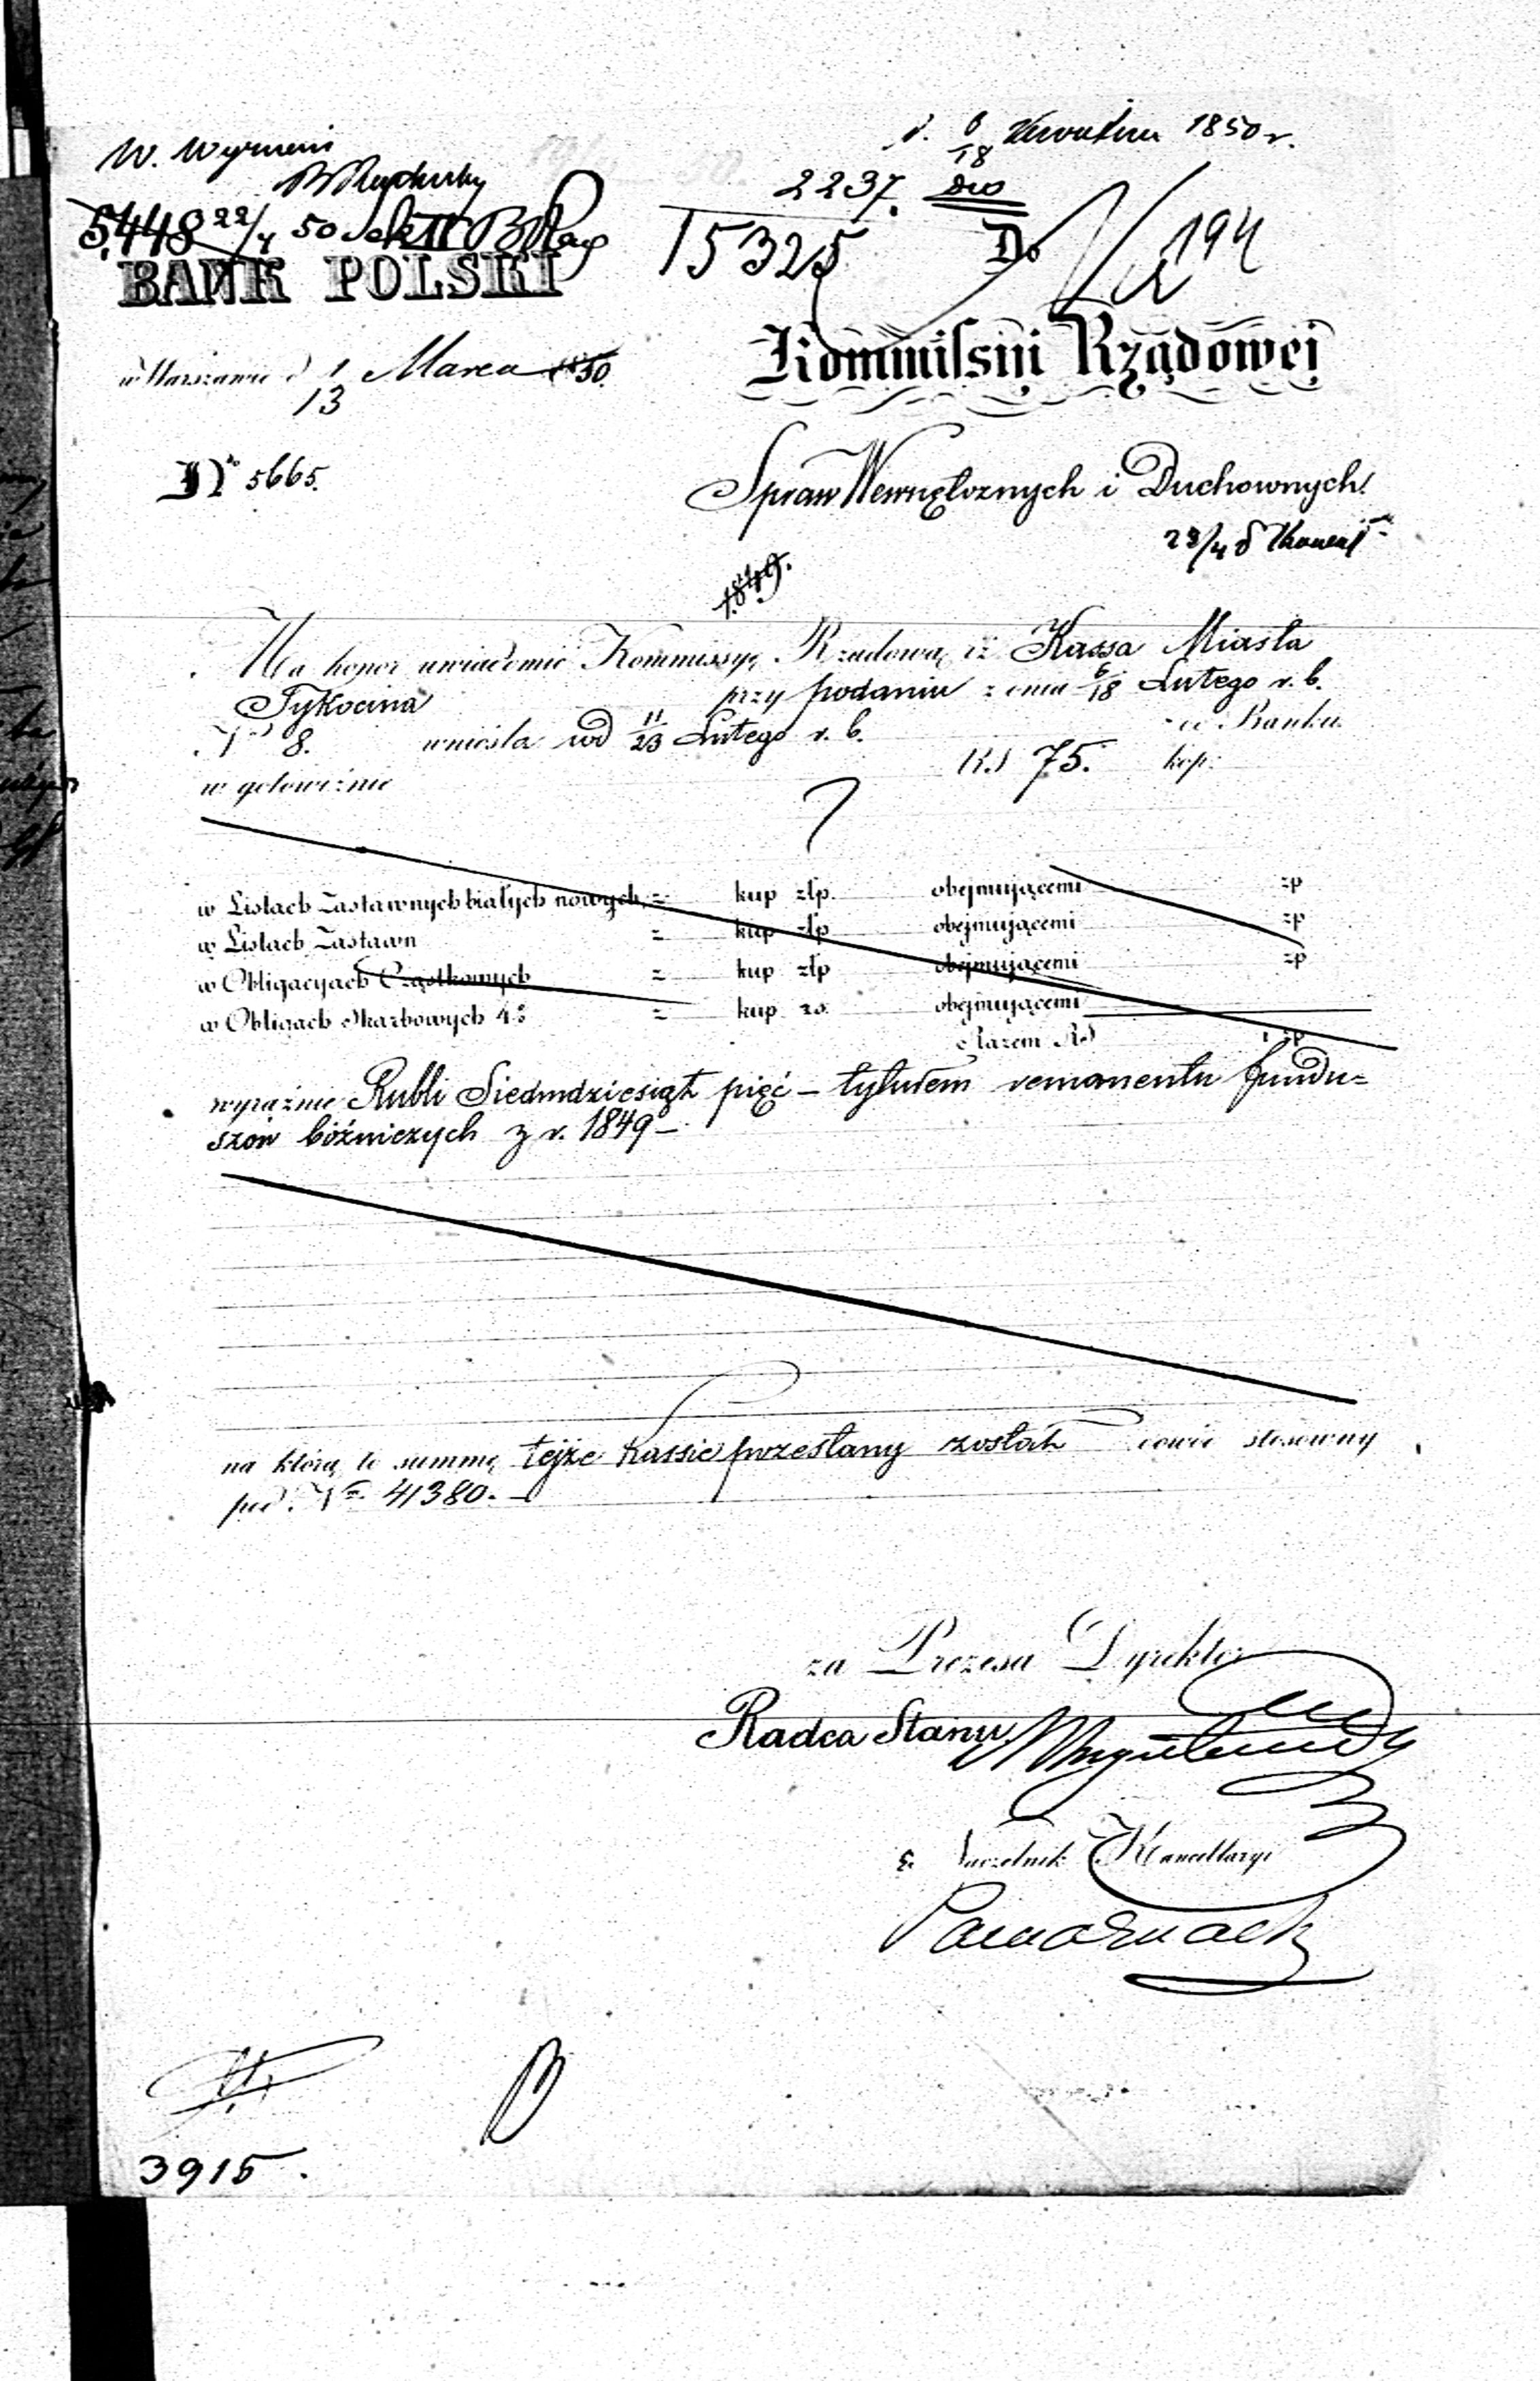 W. Wyznań
d. 6/18 Kwietnia 1850 r.
2237.
5448 22/4 50 Sekt II
15325
Do
194
BANK POLSKI
Kommissÿi Rządowej
w Warszawie d 1/13 Marca 1850.
Spraw Wewnętrznych i Duchownych.
No 5665.
23/4
1849.
Ma honor uwiadomić Kommissyę Rządową iż Kassa Miasta
Tykocina przy podaniu z dnia 6/18 Lutego r. b.
No 8. wniosła pod 11/23 Lutego r. b. do Banku
w gotowiźnie RS 75. kop:
w Listach Zastawnych białych nowych = kup złp. obejmującemi zp
w Listach Zastawn = kup złp obejmującemi zp
w Obligacyach Cząstkowych = kup złp obejmującemi zp
w Obligach Skarbowych 4% = kup rs. obejmującemi
Razem RS zp
wyraźnie Rubli Siedmdziesiąt pięć – tytułem remanentu fundu=
szów bóźniczych z r. 1849 –
na którą to summę tejże Kassie przesłany został dowód stosowny
pod No 41380. –
za Prezesa Dyrektor
Radca Stanu
Naczelnik Kancellaryi
3915.